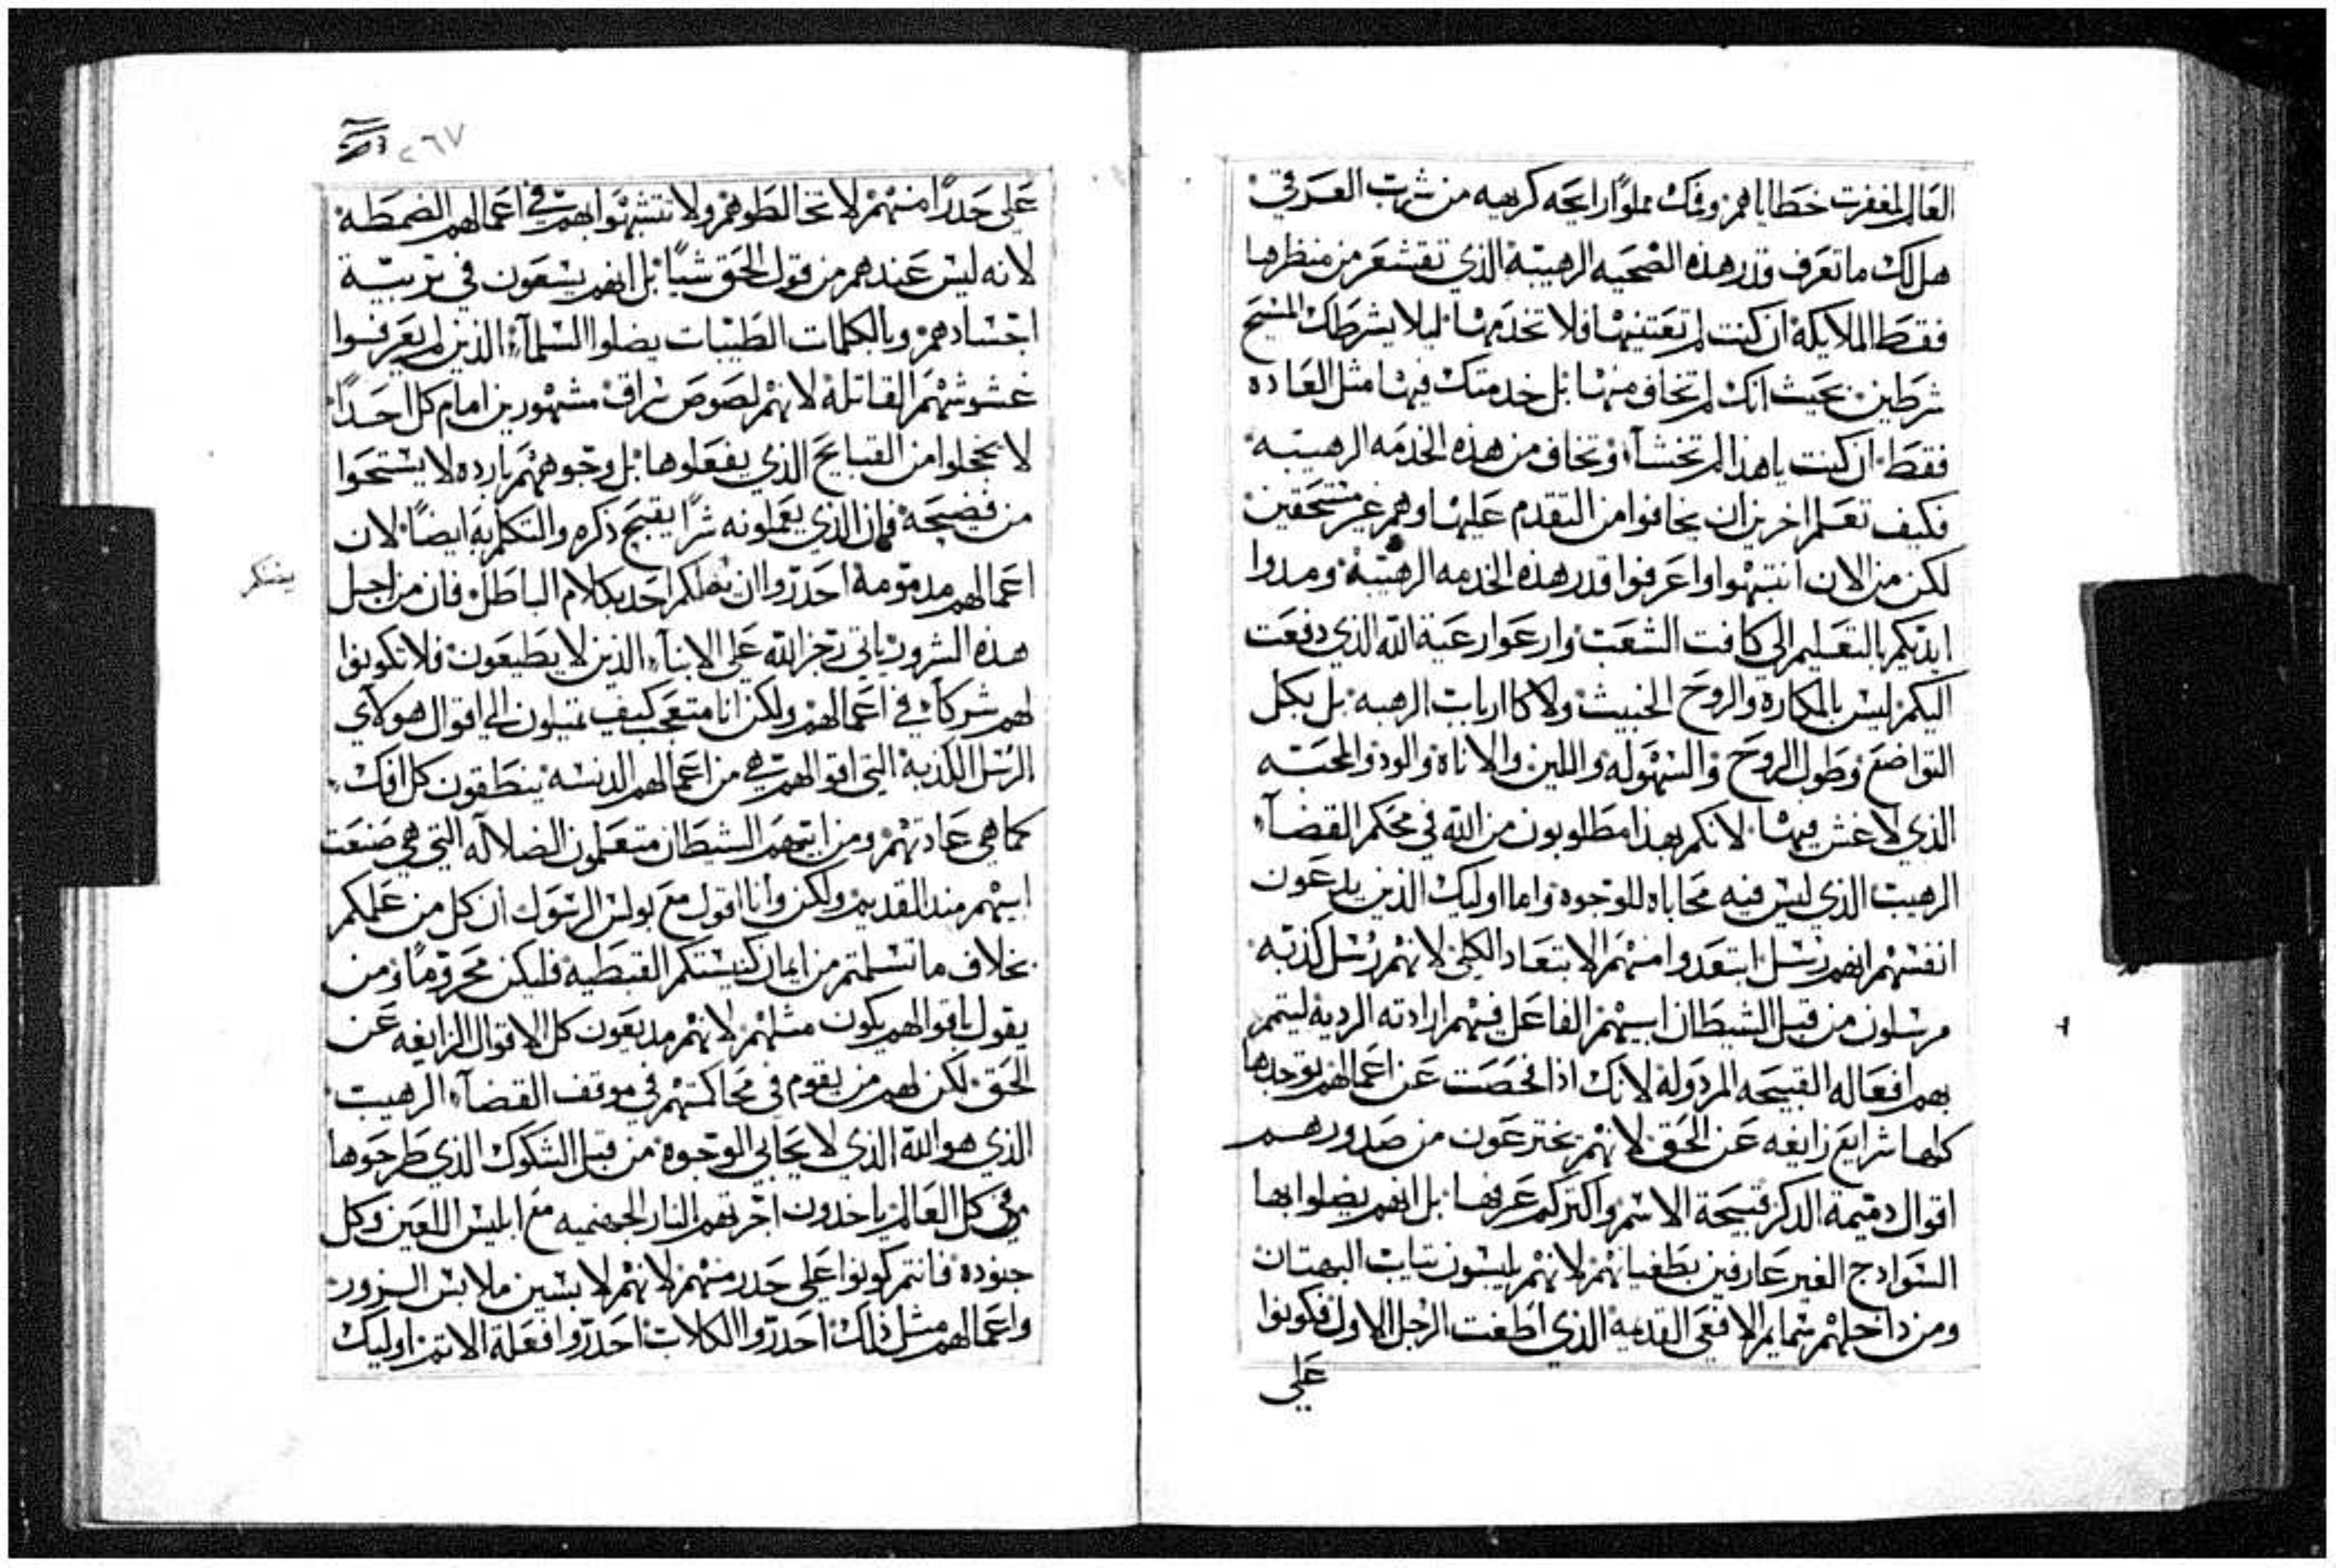 العالم لمغفرت خطاياهم وفمك مملوًا رايحه كريهه من شرب العرقي
هل لك ما تعرف قدر هذه الضحيه الرهيبة الذي تقشعر من منظرها
فقط الملايكة ان كنت لم تعتنيها فلا تخدمها ليلا يشرطك المسيح
شرطين بحيث انك لم تخاف منها بل خدمتك فيها مثل العاده
فقط ان كنت ياهذا لم تخشآ وتخاف من هذه الخدمه الرهيبه
فكيف تعلم اخرين ان يخافوا من التقدم عليها وهم غير مستحقين
لكن من الان انتبهوا واعرفوا قدر هذه الخدمه الرهيبة ومدوا
ايديكم بالتعليم الي كافت الشعب وارعوا رعية الله الذي دفعت
اليكم ليس بالمكاره والروح الخبيث ولا كا ارباب الرهبه بل بكل
التواضع وطول الروح والسهوله واللين والاناة والود والمحبه
الذي لا غش فيها لانكم بهذا مطلوبون من الله في محكم القضآء
الرهيب الذي ليس فيه محاباه للوجوه واما اوليك الذين يدعون
انفسهم انهم رسل ابتعدوا منهم الابتعاد الكلي لانهم رسل كذبه
مرسلون من قبل الشيطان ابيهم الفاعل فيهم ارادته الرديه ليتمم
بهم افعاله القبيحه المردوله لانك اذا فحصت عن اعمالهم توجدها
كلها شرايع زايفه عن الحق لانهم يخترعون من صدورهم
اقوال دميمة الدكر قبيحة الاسم واكتركم عرفها بل انهم يضلوا بها
السوادج الغير عارفين بطغيانهم لانهم يلبسون تياب البهتان
ومن داخلهم سمايم الافعي القديمه الذي اطغت الرجل الاول فكونوا
علي
٢٦٧
علي حدرًا منهم لا تخالطوهم ولا تتشبهوا بهم في اعمالهم
لانه ليس عندهم من قول الحق شيًا بل انهم يسعون في تربية
اجسادهم وبالكلمات الطيبات يضلوا السلمآء الذين لم يعرفوا
غشوشهم القاتلة لانهم لصوص سراق مشهورين امام كل احدًا
لا يخجلوا من القبايح الذي يفعلوها بل وجوههم بارده لا يستحوا
من فضيحة فان الذي يعملونه شرًا يقبح ذكره والتكلم به ايضًا لان
اعمالهم مدمومة احدروا ان يضلكم احد بكلام الباطل فان من اجل
هذه الشرور ياتي رجز الله علي الابنآء الذين لا يطيعون فلا تكونوا
لهم شركآء في اعمالهم ولكن انا متعجب كيف تميلون الي اقوال هولآي
الرسل الكذبة التي اقوالهم هي من اعمالهم الدنسه ينطقون كل افك
كما هي عادتهم ومن ابيهم الشيطان متعلمون الضلاله التي هي صنعت
ابيهم مند القديم ولكن وانا اقول مع بولس الرسول ان كل من علمكم
بخلاف ما تسلمتم من ايمان كنيستكم القبطيه فليكن محرومًا ومن
يقول باقوالهم يكون مثلهم لانهم مديعون كل الاقوال الزايفه عن
الحق لكن لهم من يقوم في محاكمتهم في موقف القضآء الرهيب
الذي هو الله الذي لا يحابي الوجوه من قبل الشكوك الذي طرحوها
في كل العالم ياخدون اجرتهم النار الجهنميه مع ابليس اللعين وكل
جنوده فانتم كونوا علي حدر منهم لانهم لابسين ملابس الزور
واعمالهم مثل ذلك احدروا الكلاب احدروا فعلة الاتم اوليك